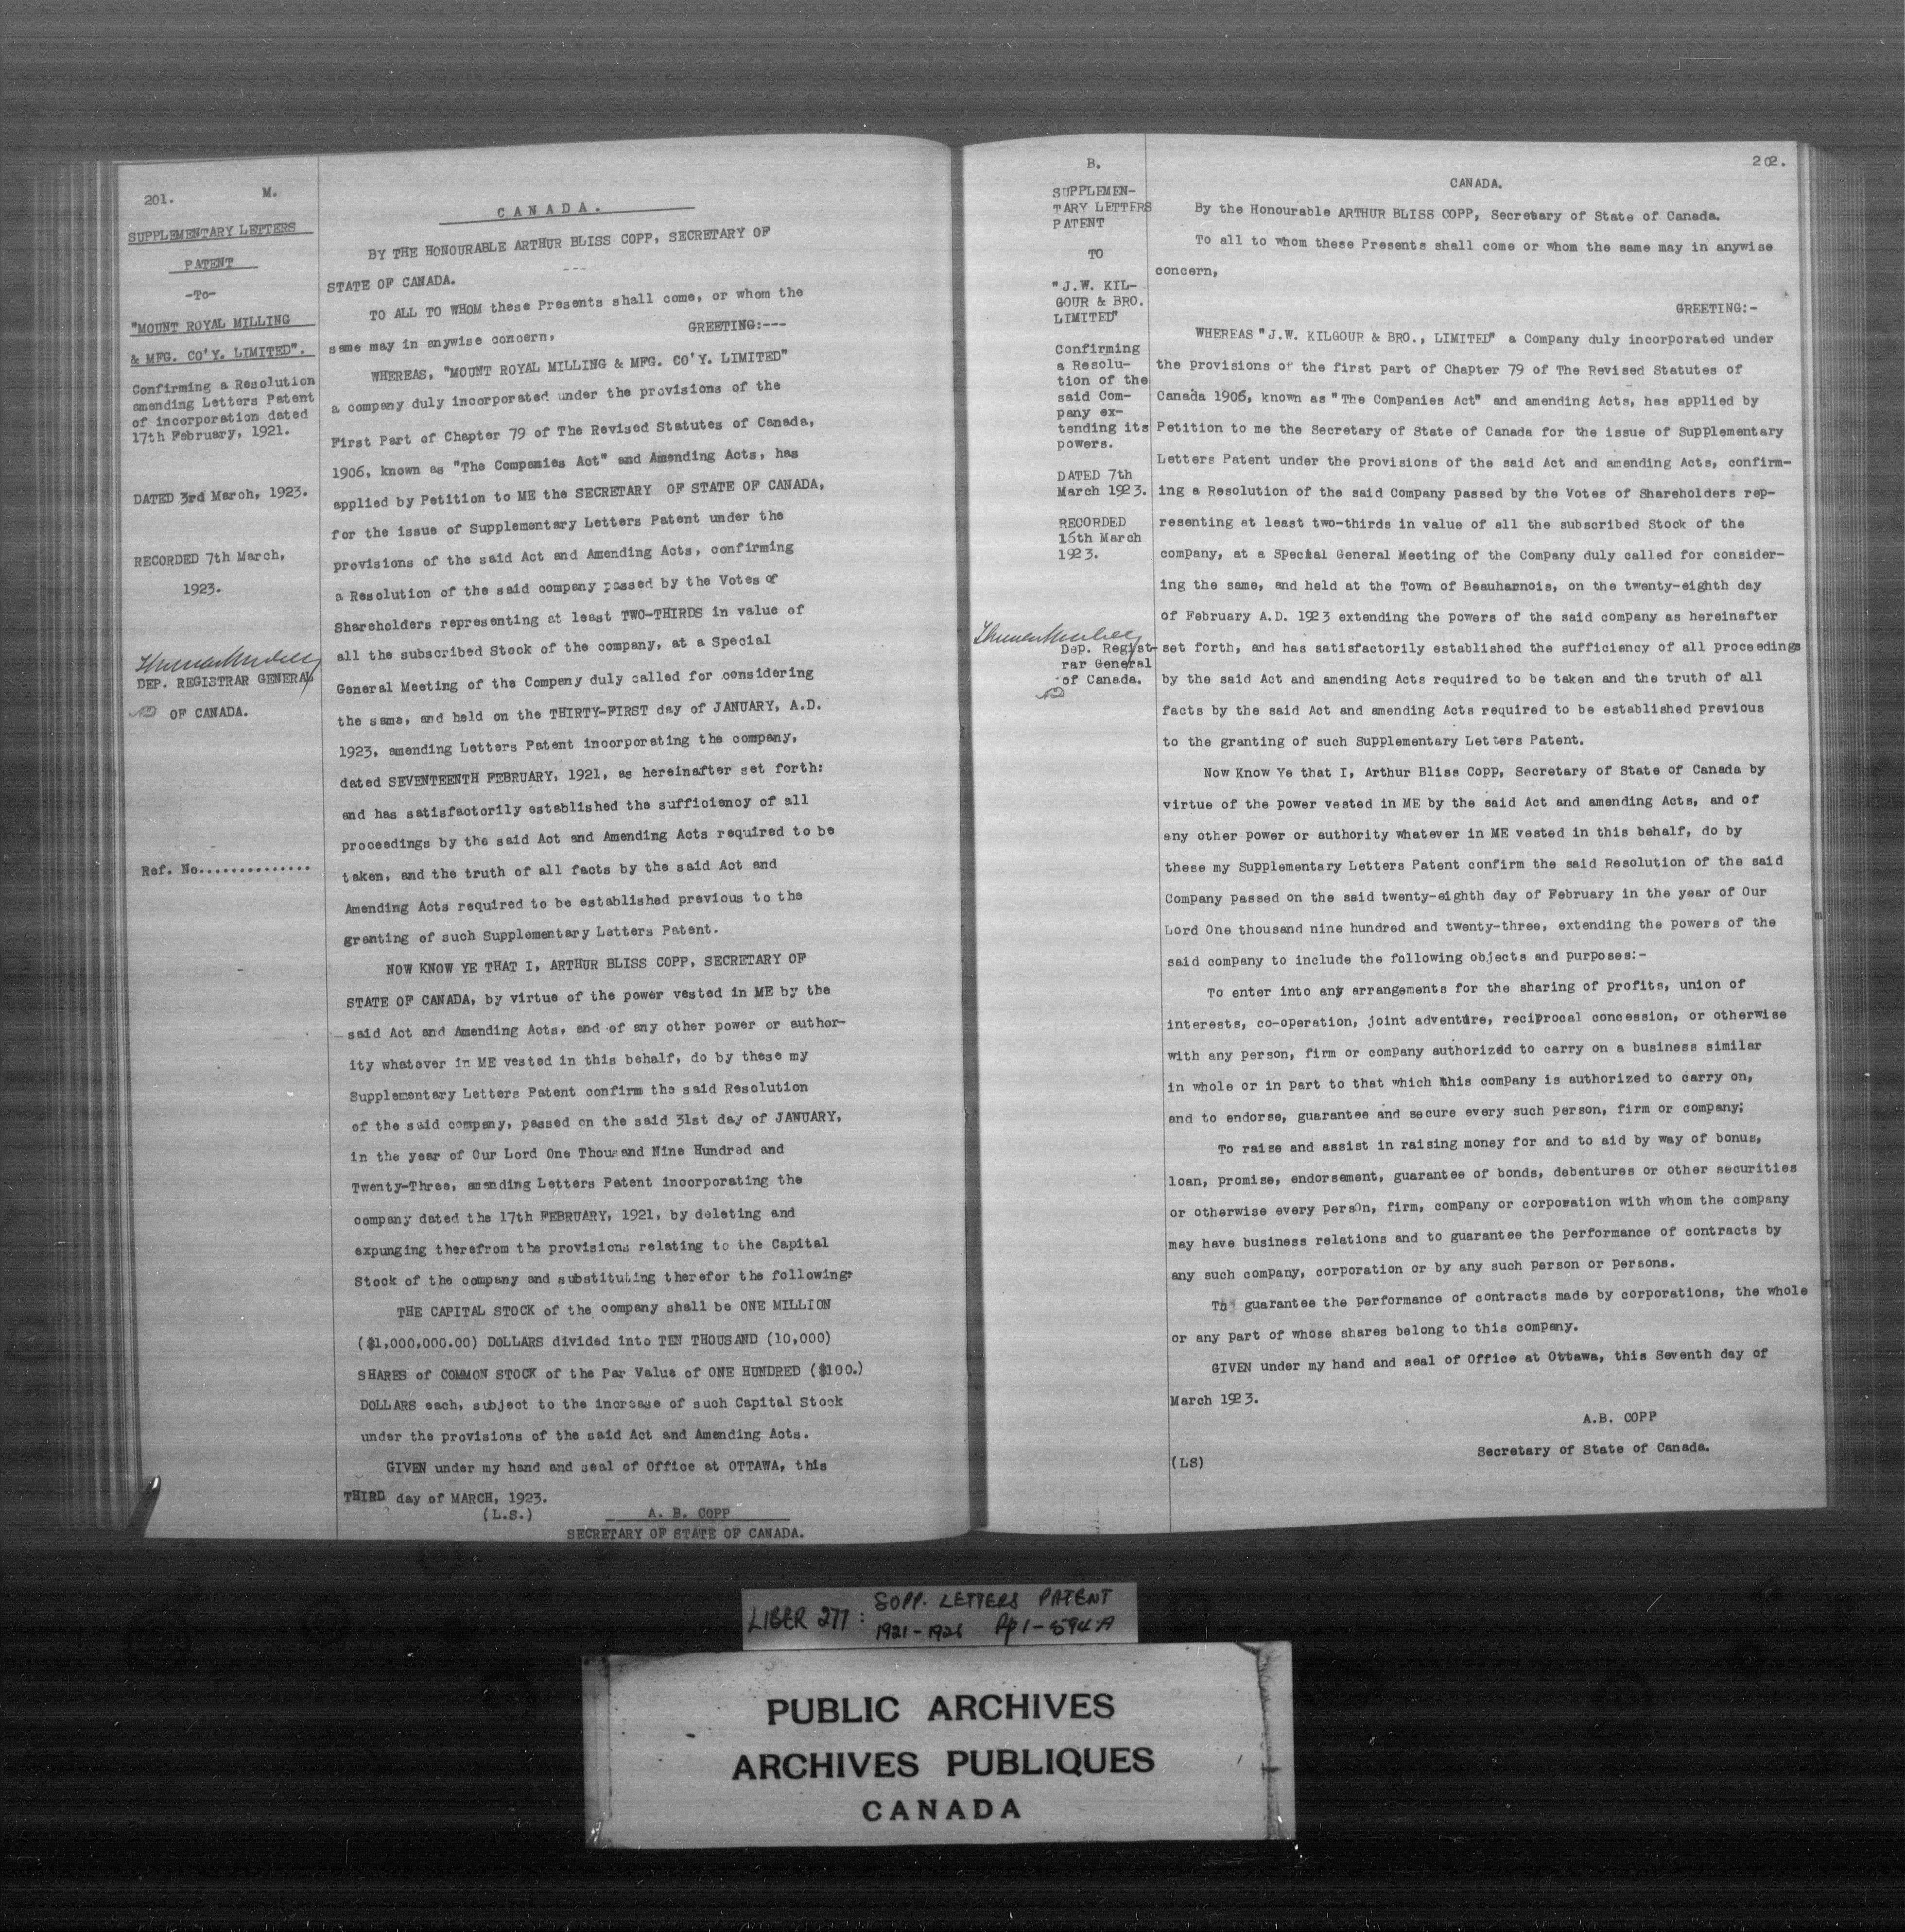 201.
M.
SUPPLEMENTARY LETTERS
PATENT
-To-
"MOUNT ROYAL MILLING
& MFG. CO'Y. LIMITED".
Confirming a Resolution
amending Letters Patent
of incorporation dated
17th February, 1921.
DATED 3rd March, 1923.
RECORDED 7th March,
1923.
DEP. REGISTRAR GENERAL
OF CANADA.
Ref. No..............
CANADA.
BY THE HONOURABLE ARTHUR BLISS COPP, SECRETARY OF
---
STATE OF CANADA.
TO ALL TO WHOM these Presents shall come, or whom the
same may in anywise concern, GREETING:---
WHEREAS, "MOUNT ROYAL MILLING & MFG. CO'Y. LIMITED"
a company duly incorporated under the provisions of the
First Part of Chapter 79 of The Revised Statutes of Canada,
1906, known as "The Companies Act" and Amending Acts, has
applied by Petition to ME the SECRETARY OF STATE OF CANADA,
for the issue of Supplementary Letters Patent under the
provisions of the said Act and Amending Acts, confirming
a Resolution of the said company passed by the Votes of
Shareholders representing at least TWO-THIRDS in value of
all the subscribed Stock of the company, at a Special
General Meeting of the Company duly called for considering
the same, and held on the THIRTY-FIRST day of JANUARY, A.D.
1923, amending Letters Patent incorporating the company,
dated SEVENTEENTH FEBRUARY, 1921, as hereinafter set forth:
and has satisfactorily established the sufficiency of all
proceedings by the said Act and Amending Acts required to be
taken, and the truth of all facts by the said Act and
Amending Acts required to be established previous to the
granting of such Supplementary Letters Patent.
NOW KNOW YE THAT I, ARTHUR BLISS COPP, SECRETARY OF
STATE OF CANADA, by virtue of the power vested in ME by the
said Act and Amending Acts, and of any other power or author-
ity whatever in ME vested in this behalf, do by these my
Supplementary Letters Patent confirm the said Resolution
of the said company, passed on the said 31st day of JANUARY,
in the year of Our Lord One Thousand Nine Hundred and
Twenty-Three, amending Letters Patent incorporating the
company dated the 17th FEBRUARY, 1921, by deleting and
expunging therefrom the provisions relating to the Capital
Stock of the company and substituting therefor the following:
THE CAPITAL STOCK of the company shall be ONE MILLION
($1,000,000.00) DOLLARS divided into TEN THOUSAND (10,000)
SHARES of COMMON STOCK of the Par Value of ONE HUNDRED ($100.)
DOLLARS each, subject to the increase of such Capital Stock
under the provisions of the said Act and Amending Acts.
GIVEN under my hand and seal of Office at OTTAWA, this
THIRD day of MARCH, 1923.
(L.S.) A. B. COPP
SECRETARY OF STATE OF CANADA.
202.
B.
SUPPLEMEN-
TARY LETTERS
PATENT
TO
"J.W. KIL-
GOUR & BRO.
LIMITED"
Confirming
a Resolu-
tion of the
said Com-
pany ex-
tending its
powers.
DATED 7th
March 1923.
RECORDED
15th March
1923.
Dep. Regist-
rar General
of Canada.
CANADA.
By the Honourable ARTHUR BLISS COPP, Secretary of State of Canada.
To all to whom these Presents shall come or whom the same may in anywise
concern,
GREETING:-
WHEREAS "J.W. KILGOUR & BRO., LIMITED" a Company duly incorporated under
the provisions of the first part of Chapter 79 of The Revised Statutes of
Canada 1906, known as "The Companies Act" and amending Acts, has applied by
Petition to me the Secretary of State of Canada for the issue of Supplementary
Letters Patent under the provisions of the said Act and amending Acts, confirm-
ing a Resolution of the said Company passed by the Votes of Shareholders rep-
resenting at least two-thirds in value of all the subscribed Stock of the
company, at a Special General Meeting of the Company duly called for consider-
ing the same, and held at the Town of Beauharnois, on the twenty-eighth day
of February A.D. 1923 extending the powers of the said company as hereinafter
set forth, and has satisfactorily established the sufficiency of all proceedings
by the said Act and amending Acts required to be taken and the truth of all
facts by the said Act and amending Acts required to be established previous
to the granting of such Supplementary Letters Patent.
Now Know Ye that I, Arthur Bliss Copp, Secretary of State of Canada by
virtue of the power vested in ME by the said Act and amending Acts, and of
any other power or authority whatever in ME vested in this behalf, do by
these my Supplementary Letters Patent confirm the said Resolution of the said
Company passed on the said twenty-eighth day of February in the year of Our
Lord One thousand nine hundred and twenty-three, extending the powers of the
said company to include the following objects and purposes:-
To enter into any arrangements for the sharing of profits, union of
interests, co-operation, joint adventure, reciprocal concession, or otherwise
with any person, firm or company authorized to carry on a business similar
in whole or in part to that which this company is authorized to carry on,
and to endorse, guarantee and secure every such person, firm or company;
To raise and assist in raising money for and to aid by way of bonus,
loan, promise, endorsement, guarantee of bonds, debentures or other securities
or otherwise every person, firm, company or corporation with whom the company
may have business relations and to guarantee the performance of contracts by
any such company, corporation or by any such person or persons.
To guarantee the performance of contracts made by corporations, the whole
or any part of whose shares belong to this company.
GIVEN under my hand and seal of Office at Ottawa, this Seventh day of
March 1923.
A.B. COPP
Secretary of State of Canada.
(LS)
LIBER 277: SUPP. LETTERS PATENT
1921-1926 Pp 1-594A
PUBLIC ARCHIVES
ARCHIVES PUBLIQUES
CANADA